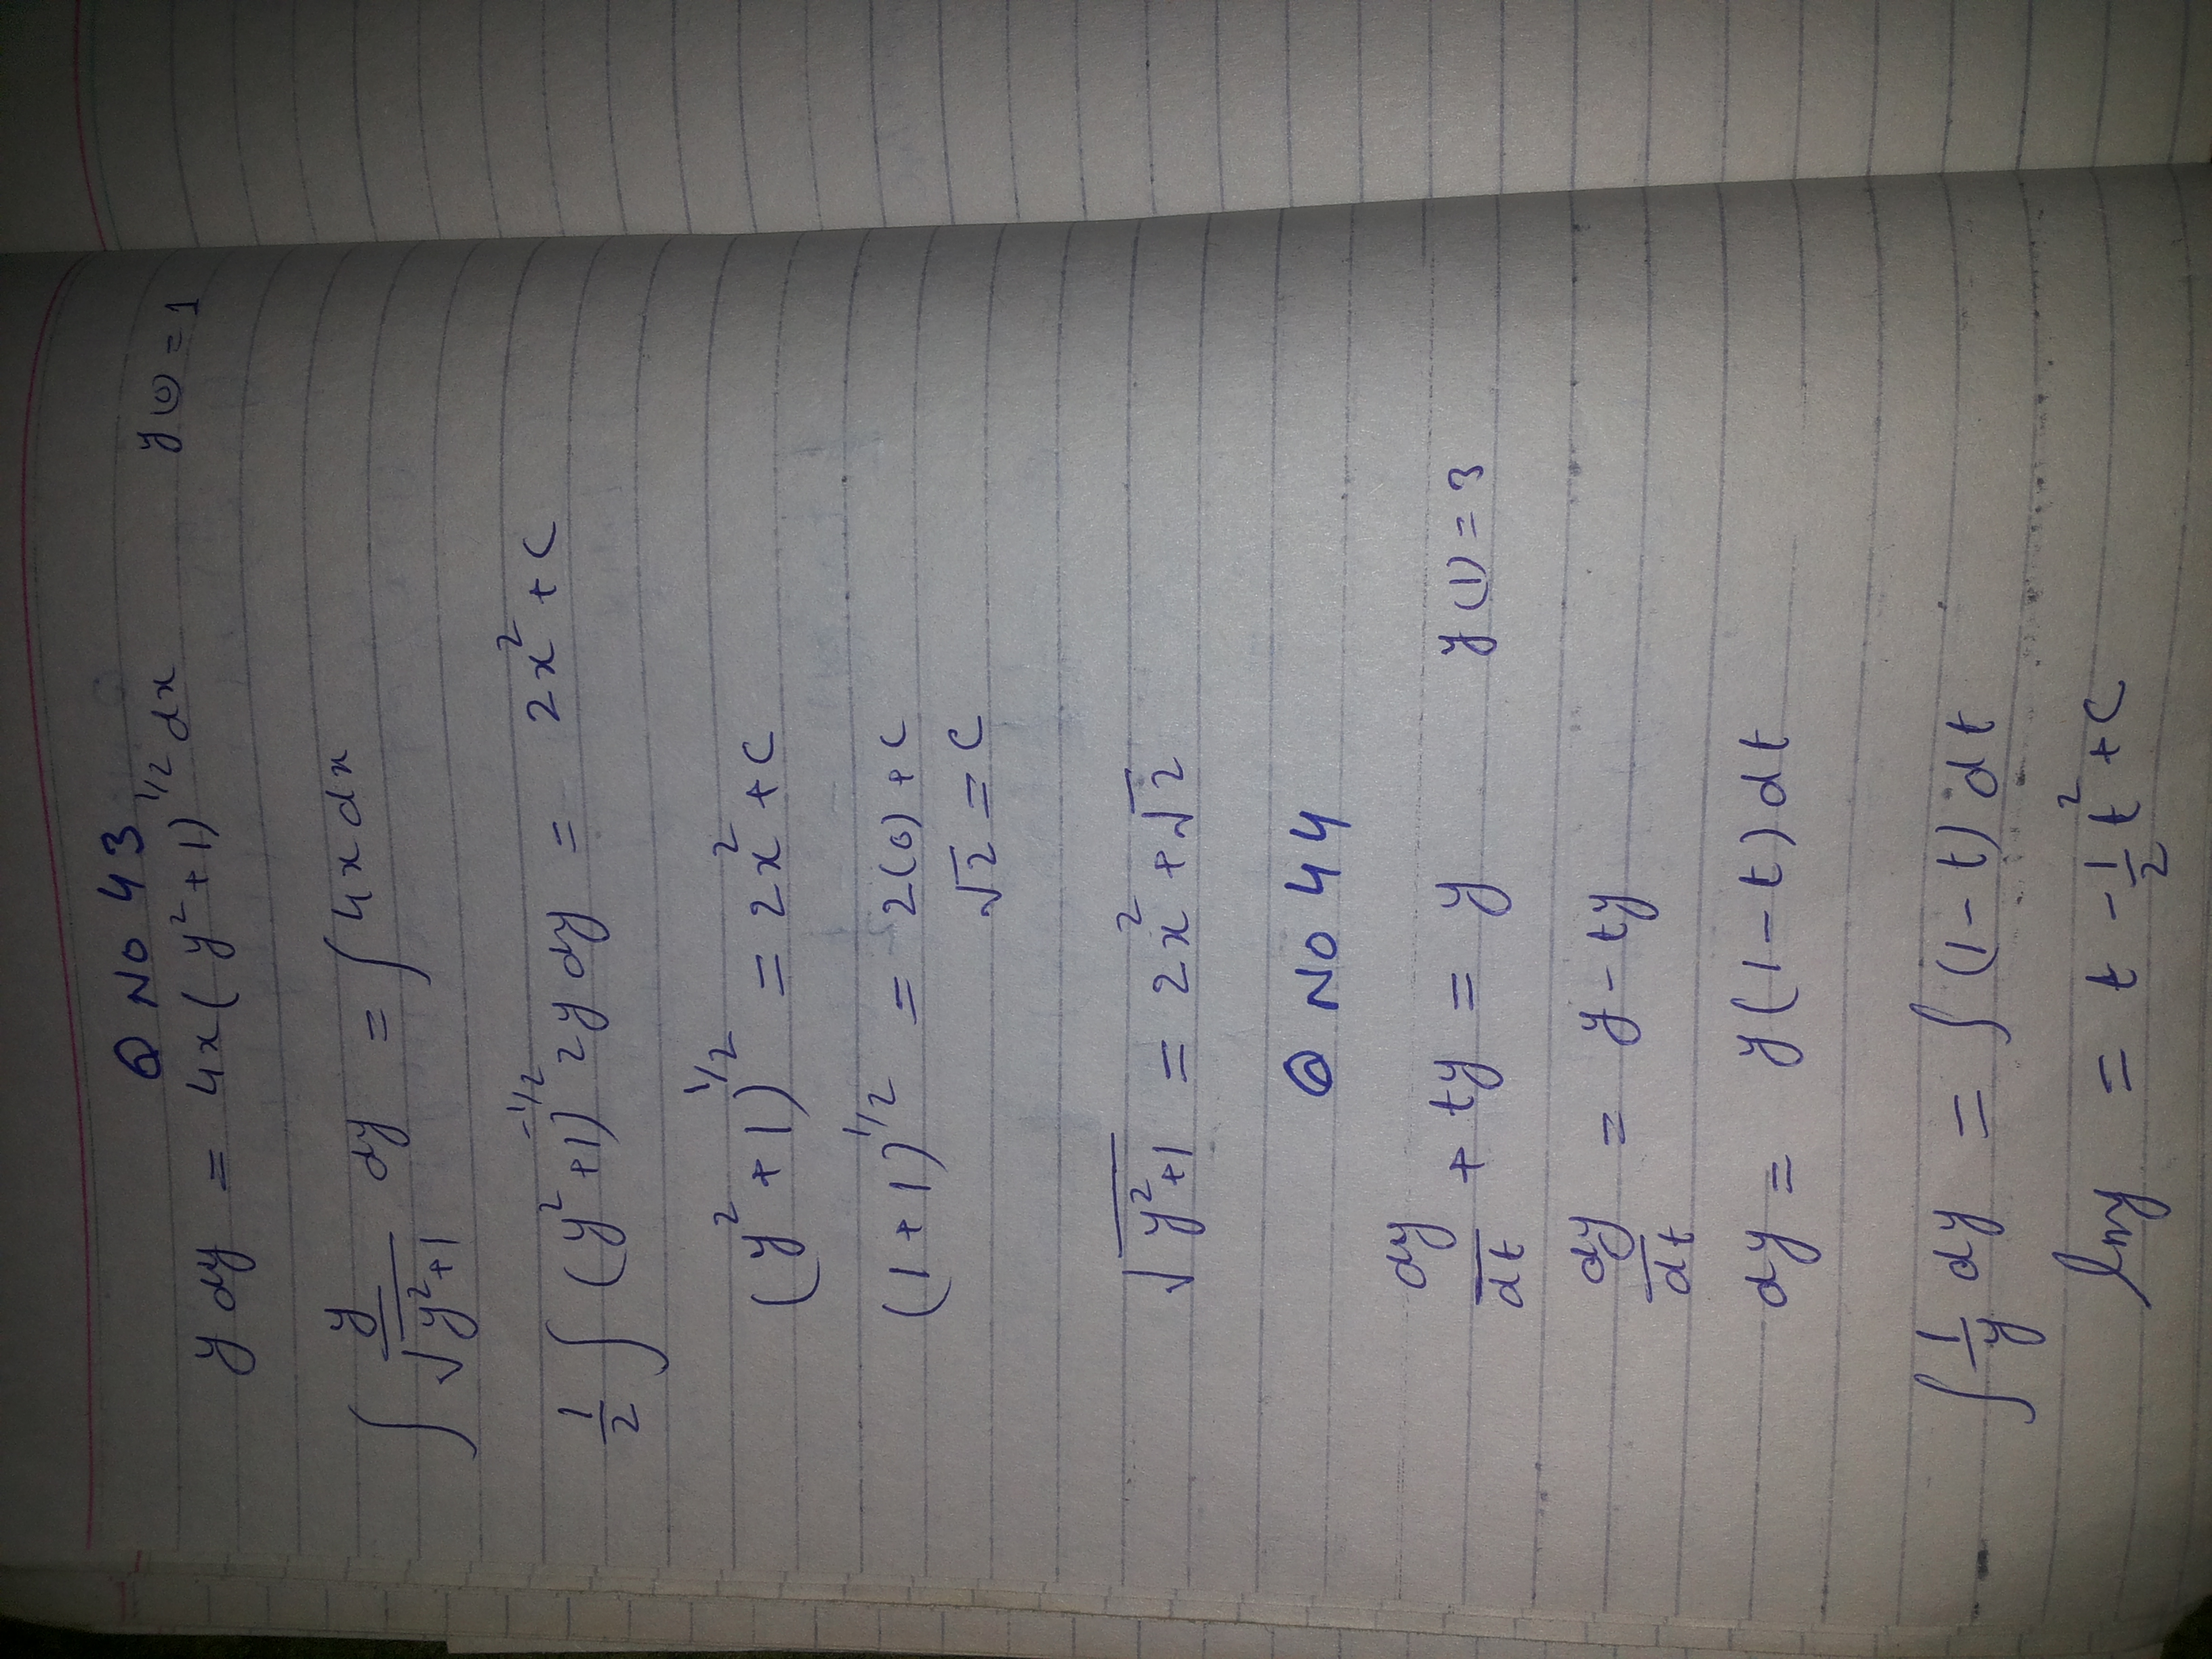 Q No 43
y dy = 4x(y²+1)^1/2 dx y(0) = 1
∫ y/√(y²+1) dy = ∫4x dx
1/2 ∫ (y²+1)^-1/2 2y dy = 2x² + C
(y²+1)^1/2 = 2x² + C
(1+1)^1/2 = 2(0) + C
√2 = C
√(y²+1) = 2x² + √2
Q No 44
dy/dt + ty = y y(1) = 3
dy/dt = y - ty
dy = y(1-t)dt
∫ 1/y dy = ∫ (1-t) dt
lny = t - 1/2 t² + C